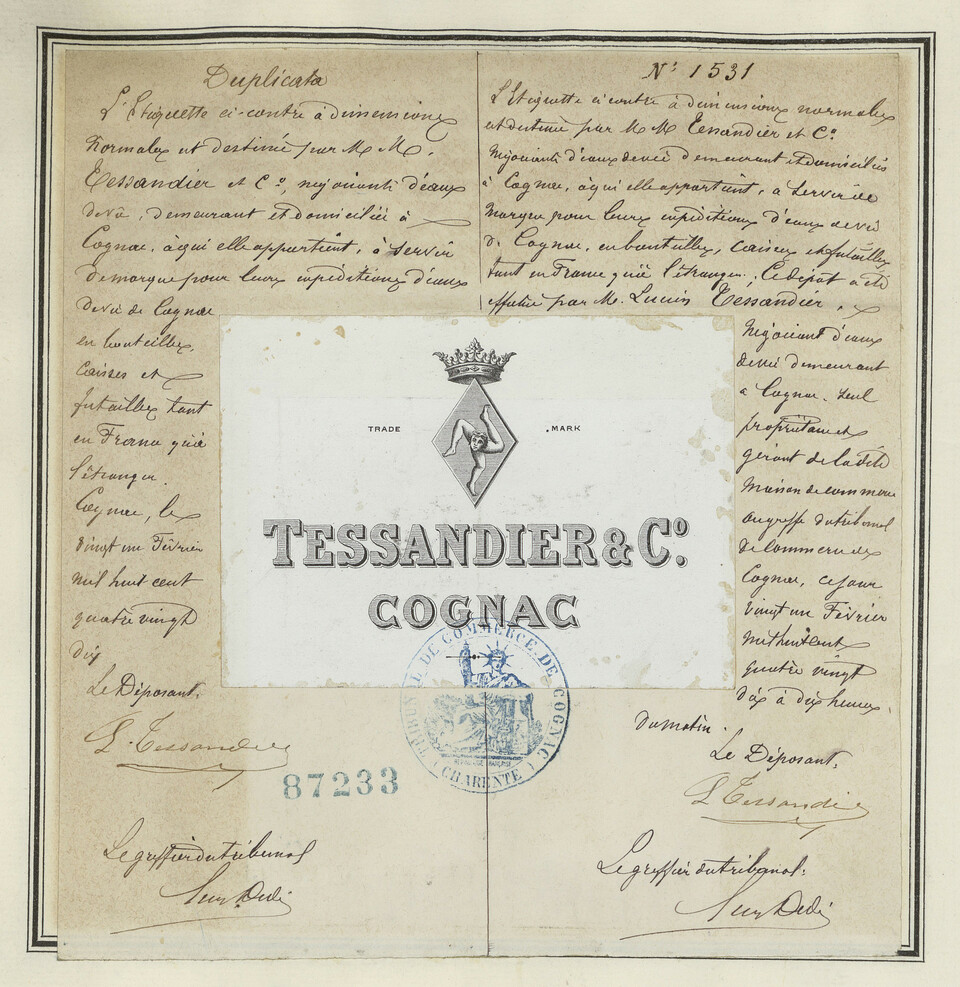 Duplicata
L'Etiquette ci-contre à dimensions
Normales est destinée par M M.
Tessandier et Cº, négociants d'eaux
de vie, demeurant et domiciliés à
Cognac, à qui elle appartient, à servir
de marque pour leurs expéditions d'eaux
de vie de Cognac
en bouteilles,
caisses et
futailles tant
en France qu'à
l'étranger.
Cognac, le
vingt un Février
mil huit cent
quatre vingt
dix
Le Déposant,
L. Tessandier
87233
Le greffier du tribunal
Nº 1531
L'Etiquette ci contre à dimensions normales
est destinée par M M Tessandier et Cº
négociants d'eaux de vie demeurant et domiciliés
à Cognac, à qui elle appartient, à servir de
marque pour leurs expéditions d'eaux de vie
de Cognac, en bouteilles, caisses et futailles
tant en France qu'à l'étranger; Ce dépôt a été
effectué par M. Lucien Tessandier,
Négociant d'eaux
de vie demeurant
à Cognac, seul
propriétaire et
gérant de la dite
Maison de commerce
au greffe du tribunal
de commerce de
Cognac, ce jour
vingt un Février
mil huit cent
quatre vingt
dix à dix heures
du matin.
Le Déposant,
L Tessandier
Le greffier du tribunal:
TRADE MARK
TESSANDIER & Cº.
COGNAC
TRIBUNAL DE COMMERCE DE COGNAC
(CHARENTE)